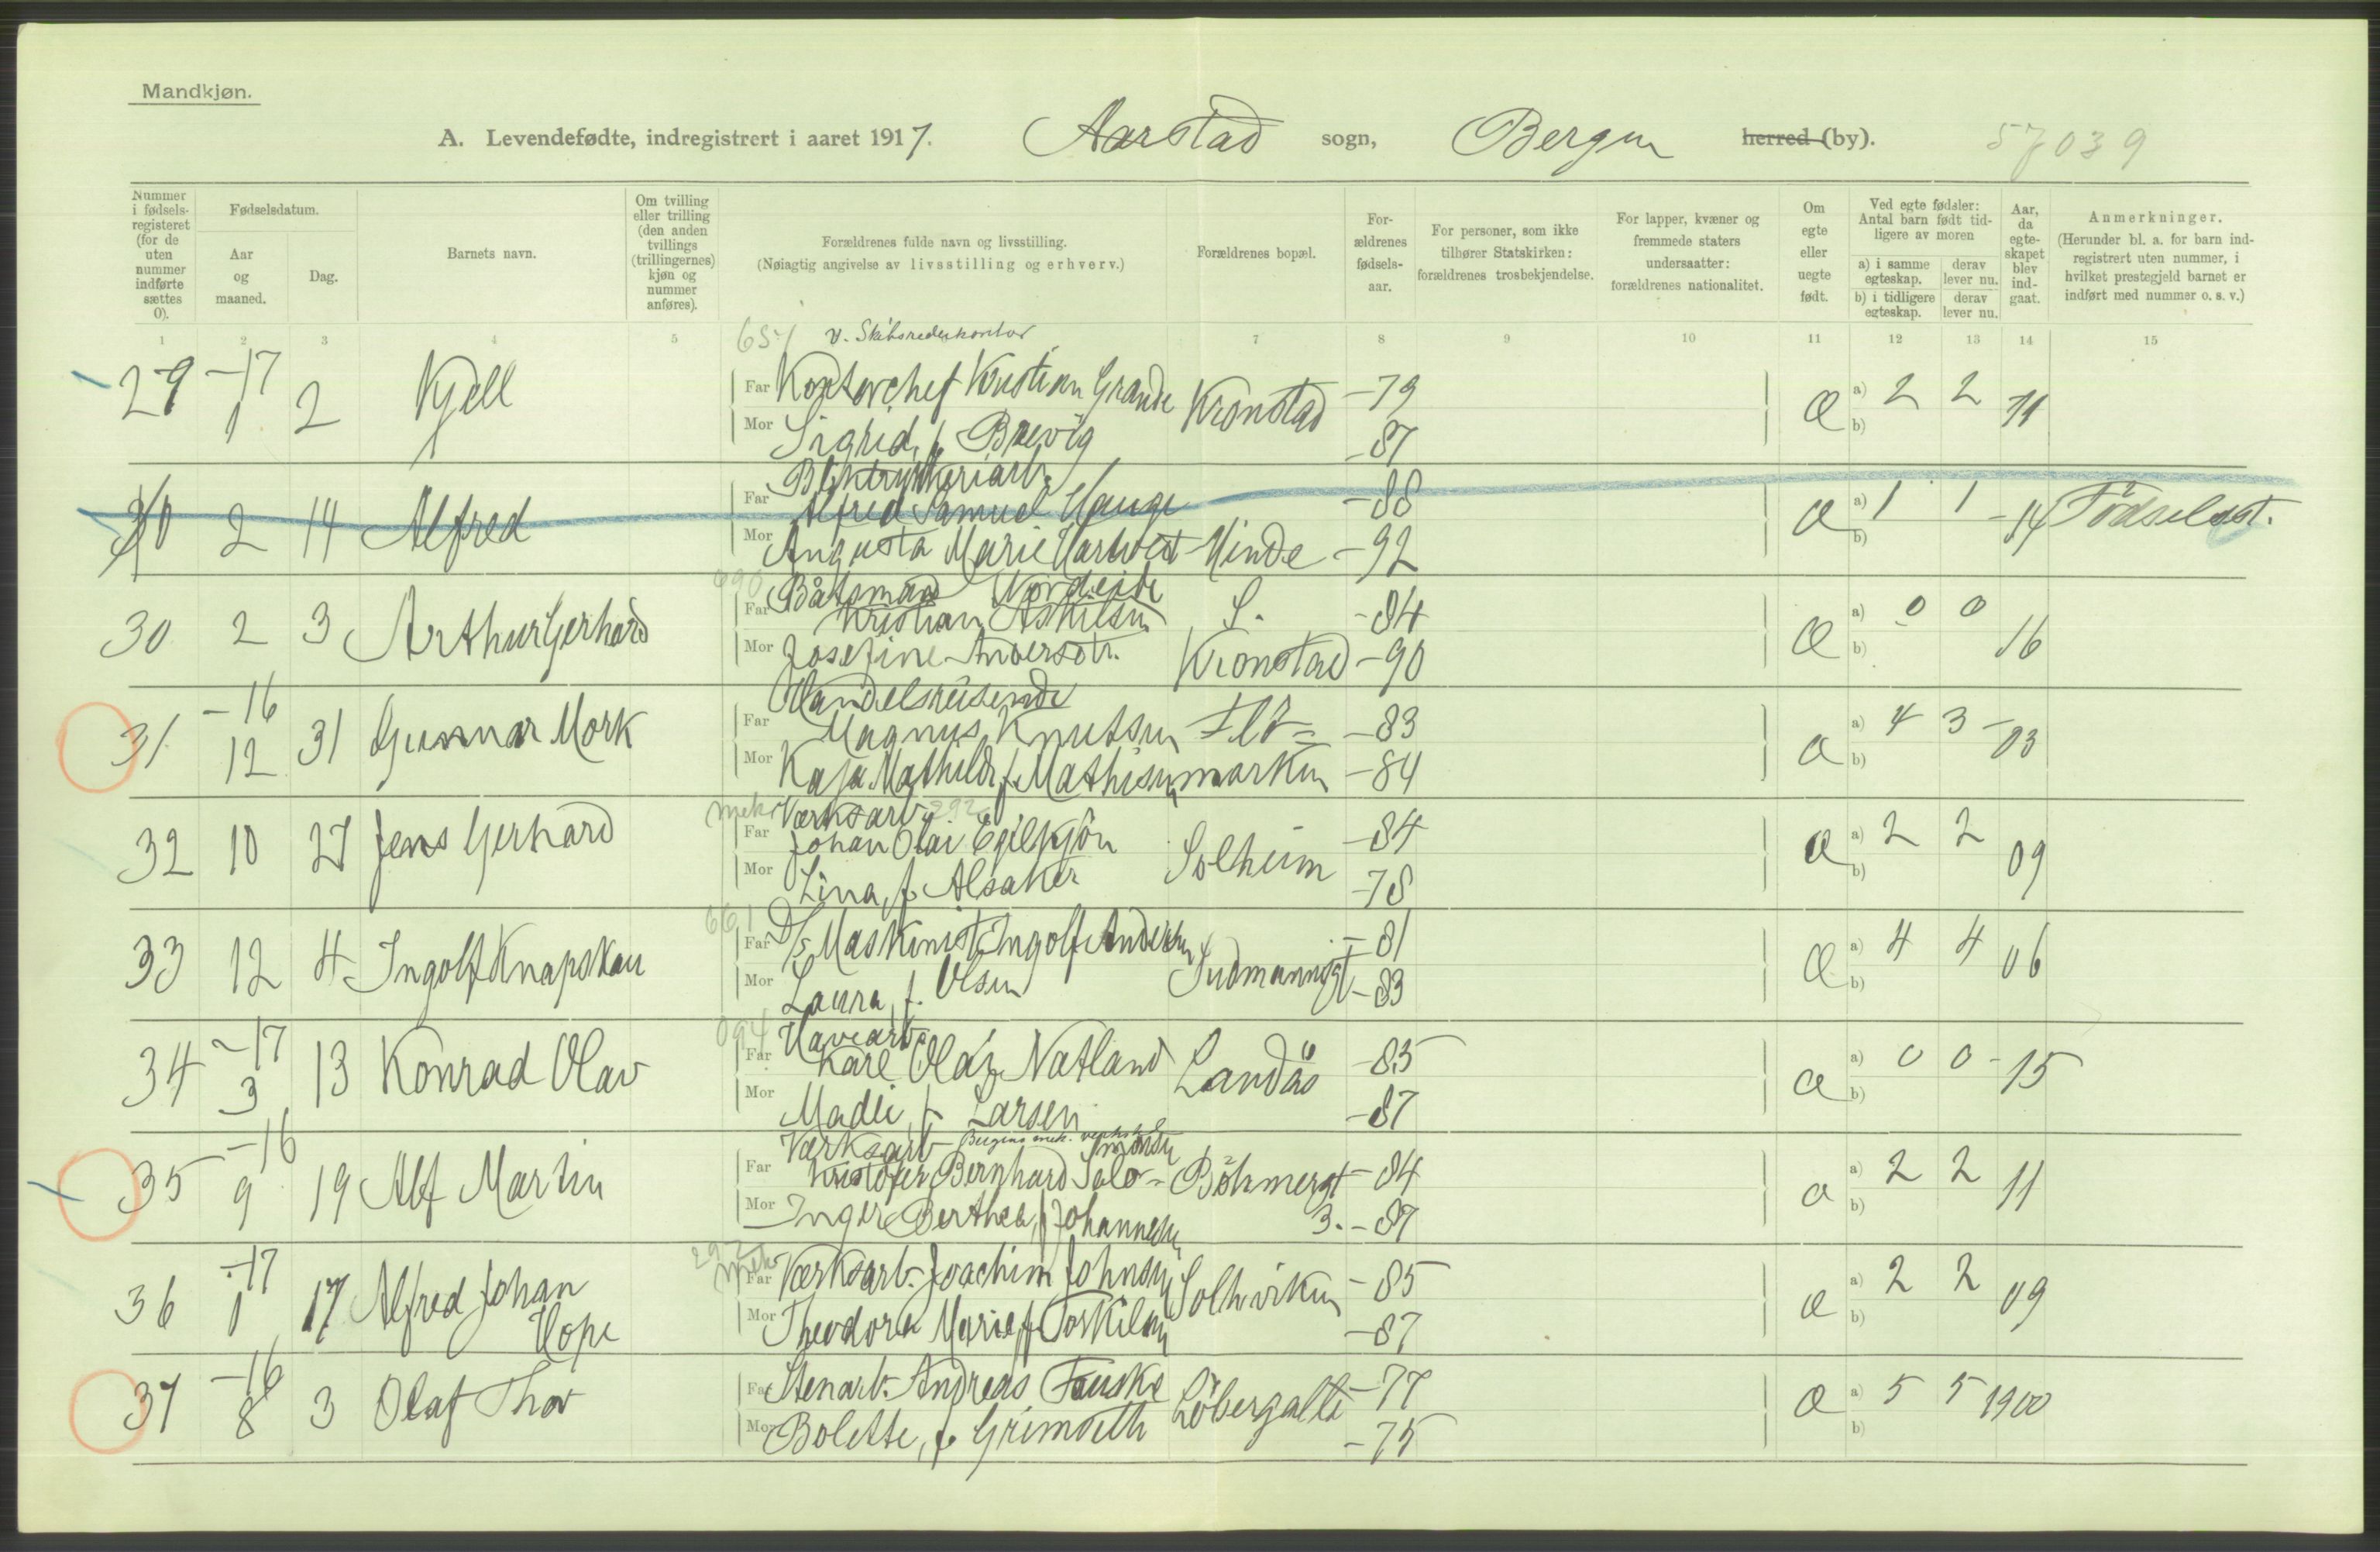 Mandkjøn.
A. Levendefødte, indregistrert i aaret 1917. Aarstad sogn, Bergen herred (by). 57039
Nummer i fødsels-registeret (for de uten nummer indførte sættes 0).
Fødselsdatum.
Aar og maaned.
Dag.
Barnets navn.
Om tvilling eller trilling (den anden tvillings (trillingernes) kjøn og nummer anføres).
Forældrenes fulde navn og livsstilling.
(Nøiagtig angivelse av livsstilling og erhverv.)
Forældrenes bopæl.
For-ældrenes fødsels-aar.
For personer, som ikke tilhører Statskirken: forældrenes trosbekjendelse.
For lapper, kvæner og fremmede staters undersaatter: forældrenes nationalitet.
Om egte eller uegte født.
Ved egte fødsler: Antal barn født tid-ligere av moren
a) i samme egteskap. derav lever nu.
b) i tidligere egteskap. derav lever nu.
Aar, da egte-skapet blev ind-gaat.
Anmerkninger.
(Herunder bl. a. for barn ind-registrert uten nummer, i hvilket prestegjeld barnet er indført med nummer o. s. v.)
1 2 3 4 5 7 8 9 10 11 12 13 14 15
651 v. Skibsrederkontor
29 -17 1 2 Kjell Far Kontorchef Kristian Grande Kronstad -79 Æ a) 2 2 11
Mor Sigrid, f. Brevig -87 b)
Bliktrykkeriarb.
30 2 14 Alfred Far Alfred Samuel Hauge -88 Æ a) 1 1 -14 Fødselsst.
Mor Augusta Marie Hartvedt Minde -92 b)
690 Båtsmand Nordeide
30 2 3 Arthur Gerhard Far Kristian Askilsen S. -84 Æ a) 0 0 16
Mor Josefine Andersdtr. Kronstad -90 b)
Handelsreisende
31 -16 12 31 Gunnar Mork Far Magnus Knutsen Flot= -83 Æ a) 4 3 -03
Mor Kaja Mathilde, f. Mathisen marken -84 b)
mek. Værksarb. 292
32 10 27 Jens Gerhard Far Johan Olai Eğilkjøn Solheim -84 Æ a) 2 2 09
Mor Lina, f. Alsaker -78 b)
661
33 12 4 Ingolf Knapskau Far D/s Maskinist Ingolf Andersen Sudmannsgt -81 Æ a) 4 4 06
Mor Laura, f. Olsen -83 b)
094 Havearb.
34 -17 3 13 Konrad Olav Far Karl Olai Natland Landås -85 Æ a) 0 0 -15
Mor Madli, f. Larsen -87 b)
Værksarb. Bergens mek. verksted
35 -16 9 19 Alf Martin Far Kristofer Bernhard Salo= Böhmergt -84 Æ a) 2 2 11
Mor Inger Berthea, f. Johannesen 3. -87 b)
292 mek
36 -17 1 17 Alfred Johan Far Værksarb. Joachim Johnsen Solhvikin -85 Æ a) 2 2 09
Hope Mor Theodora Marie, f. Torkilsen -87 b)
37 -16 8 3 Olaf Thor Far Stenarb. Andreas Fauske Löbergalle -77 Æ a) 5 5 1900
Mor Bolette, f. Grimseth -75 b)